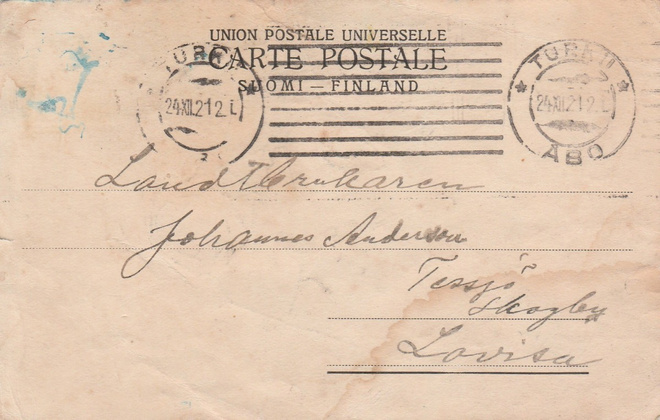 UNION POSTALE UNIVERSELLE
CARTE POSTALE
SUOMI — FINLAND
TURKU
24.XII.21 2 i.
TURKU
24.XII.21 2 i.
ÅBO
Landtbrukaren
Johannes Anderson
Tessjö
Skogby
Lovisa